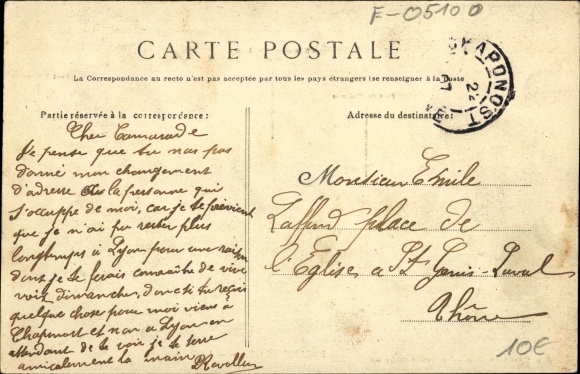 F-0510D
CARTE POSTALE
La Correspondance au recto n'est pas acceptée par tous les pays étrangers (se renseigner à la Poste
CHAPONOST
Partie réservée à la correspondance:
Adresse du destinataire:
Cher Camarade
Je pense que tu nas pas
donné mon changement
d'adresse a la personne qui
s'occuppe de moi, car je te prévient
que je n'ai pu rester plus
longtemps à Lyon pour une raison
dont je te ferais connaître de vive
voix dimanche, donc si tu reçoi
quelque chose pour moi viens à
Chaponost et non a Lyon en
attendant de te voir je te serre
amicalement la main
Monsieur Emile
Laffond place de
l'Eglise a St Genis-Laval
Rhône
10€